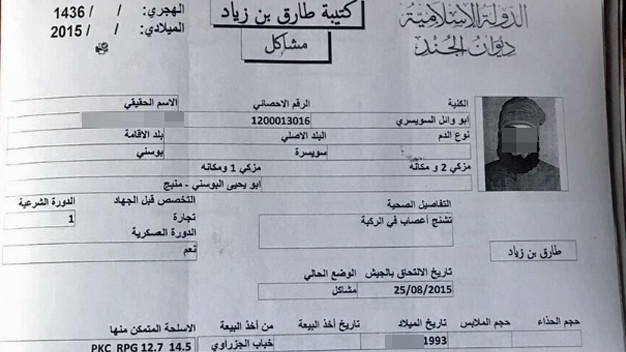 الدولة الإسلامية
ديوان الجند
كتيبة طارق بن زياد
مشاكل
الهجري: / / 1436
الميلادي: / / 2015
الكنية
الرقم الاحصائي
الاسم الحقيقي
ابو وائل السويسري
1200013016
نوع الدم
البلد الاصلي
بلد الاقامة
سويسرة
بوسني
مزكي 2 و مكانه
مزكي 1 ومكانه
ابو يحيى البوسني - منبج
التفاصيل الصحية
التخصص قبل الجهاد
الدورة الشرعية
تشنج أعصاب في الركبة
تجارة
1
الدورة العسكرية
نعم
طارق بن زياد
تاريخ الالتحاق بالجيش
الوضع الحالي
25/08/2015
مشاكل
حجم الحذاء
حجم الملابس
تاريخ الميلاد
تاريخ أخذ البيعة
من أخذ البيعة
الاسلحة المتمكن منها
1993
خباب الجزراوي
PKC RPG 12.7 14.5